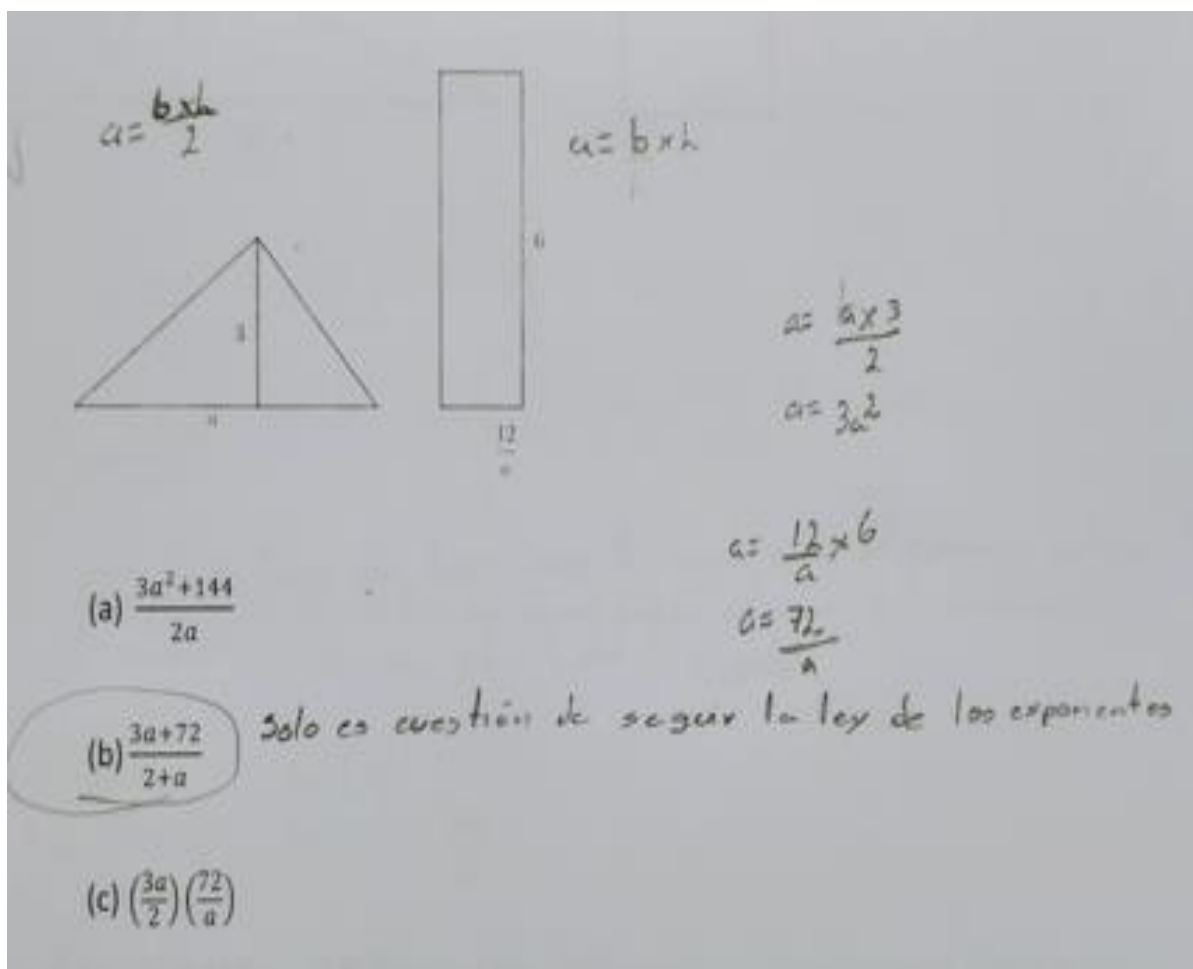 a = b x h / 2
a = b x h
6
3
a
12 / a
a = a x 3 / 2
a = 3a 2
a = 12 / a x 6
a = 72 / a
(a) 3a²+144 / 2a
(b) 3a+72 / 2+a Solo es cuestión de seguir la ley de los exponentes
(c) (3a/2)(72/a)